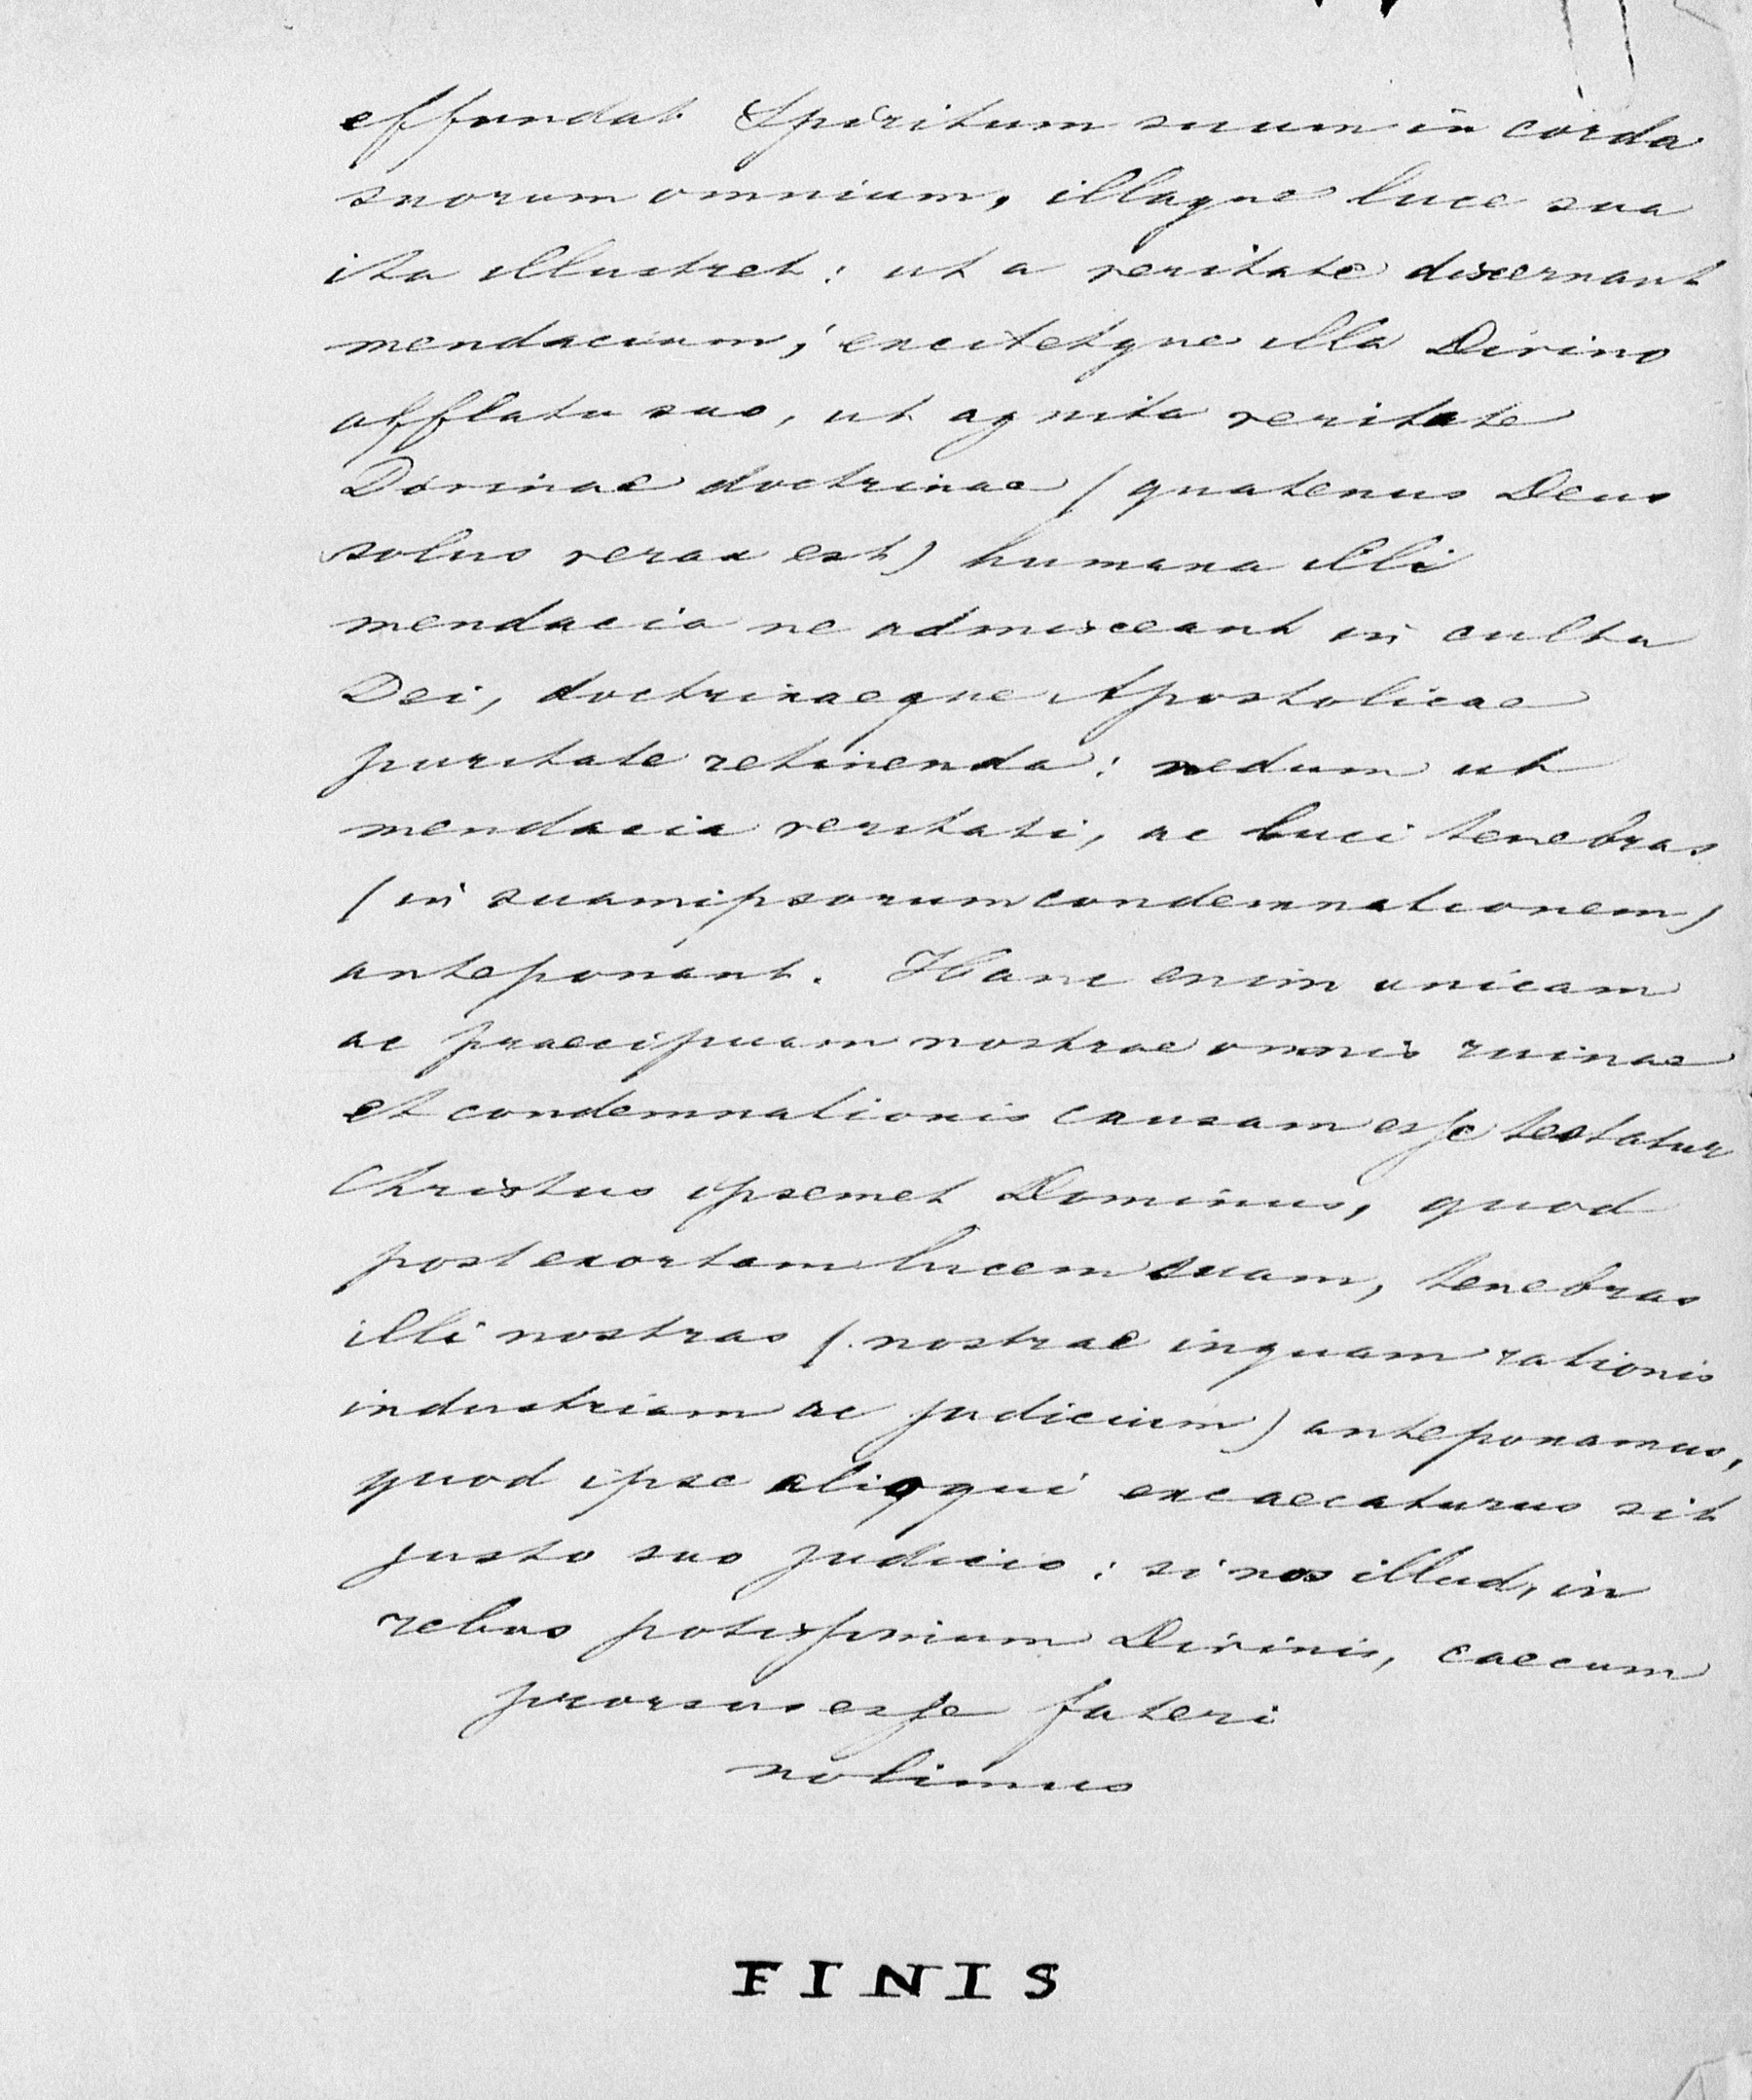 effundat Spiritum suum in corda
suorum omnium, illaque luce sua
ita illustret: ut a veritate discernant
mendacium; excitetque illa Divino
afflatu suo, ut agnita veritate
Divinae doctrinae (quatenus Deus
solus verax est) humana illi
mendacia ne admisceant in cultu
Dei, doctrinaeque Apostolicae
puritate retinenda: nedum ut
mendacia veritati, ac luci tenebras
(in suamipsorum condemnationem)
anteponant. Hanc enim unicam
ac praecipuam nostrae omnis ruinae
et condemnationis causam esse testatur
Christus ipsemet Dominus, quod
post exortam lucem suam, tenebras
illi nostras (nostrae inquam rationis
industriam ac judicium) anteponamus,
quod ipse alioqui excaecaturus sit
justo suo judicio: si nos illud, in
rebus potissimum Divinis, caecum
prorsus esse fateri
nolimus
FINIS